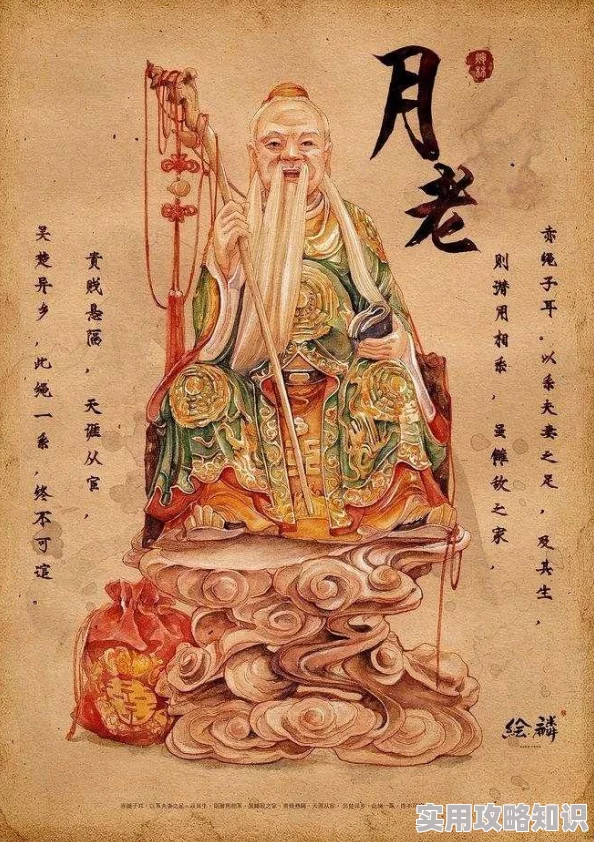 月老
赤绳子耳。以系夫妻之足,及其生,
则潜用相系,虽雠敌之家,
贵贱悬隔,天涯从宦,
吴楚异乡,此绳一系,终不可逭。
絵麟
实用攻略知识